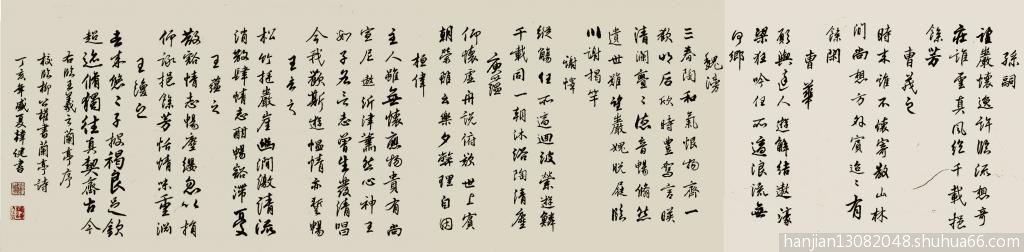 孫嗣
望巖懷逸許臨流想奇
莊誰云真風絕千載挹
餘芳
曹茂之
時来誰不懷寄散山林
間尚想方外賓迢〻有
餘閑
曹華
願與達人遊解結遨濠
梁狂吟任所適浪流無
何鄉
魏滂
三春陶和氣萬物齊一
歡明后欣時豐駕言映
清瀾亹〻德音暢蕭然
遺世難望巖愧脫屣臨
川謝揭竿
謝繹
縱觴任所適迴波縈遊鱗
千載同一朝沐浴陶清塵
庾蘊
仰懷虛舟說俯歎世上賓
朝榮雖云樂夕斃理自因
桓偉
主人雖無懷應物貴有尚
宣尼遨沂津蕭然心神王
數子各言志曾生發清唱
今我歎斯遊愠情亦暫暢
王玄之
松竹挺巖崖幽澗激清流
消散肆情志酣暢豁滯憂
王蘊之
散豁情志暢塵纓忽以捐
仰詠挹餘芳怡情味重淵
王渙之
去来悠〻子披褐良足欽
超跡脩獨往真契齊古今
右臨王羲之蘭亭序
校臨柳公權書蘭亭詩
丁亥年盛夏韓健書
hanjian13082048.shuhua66.com